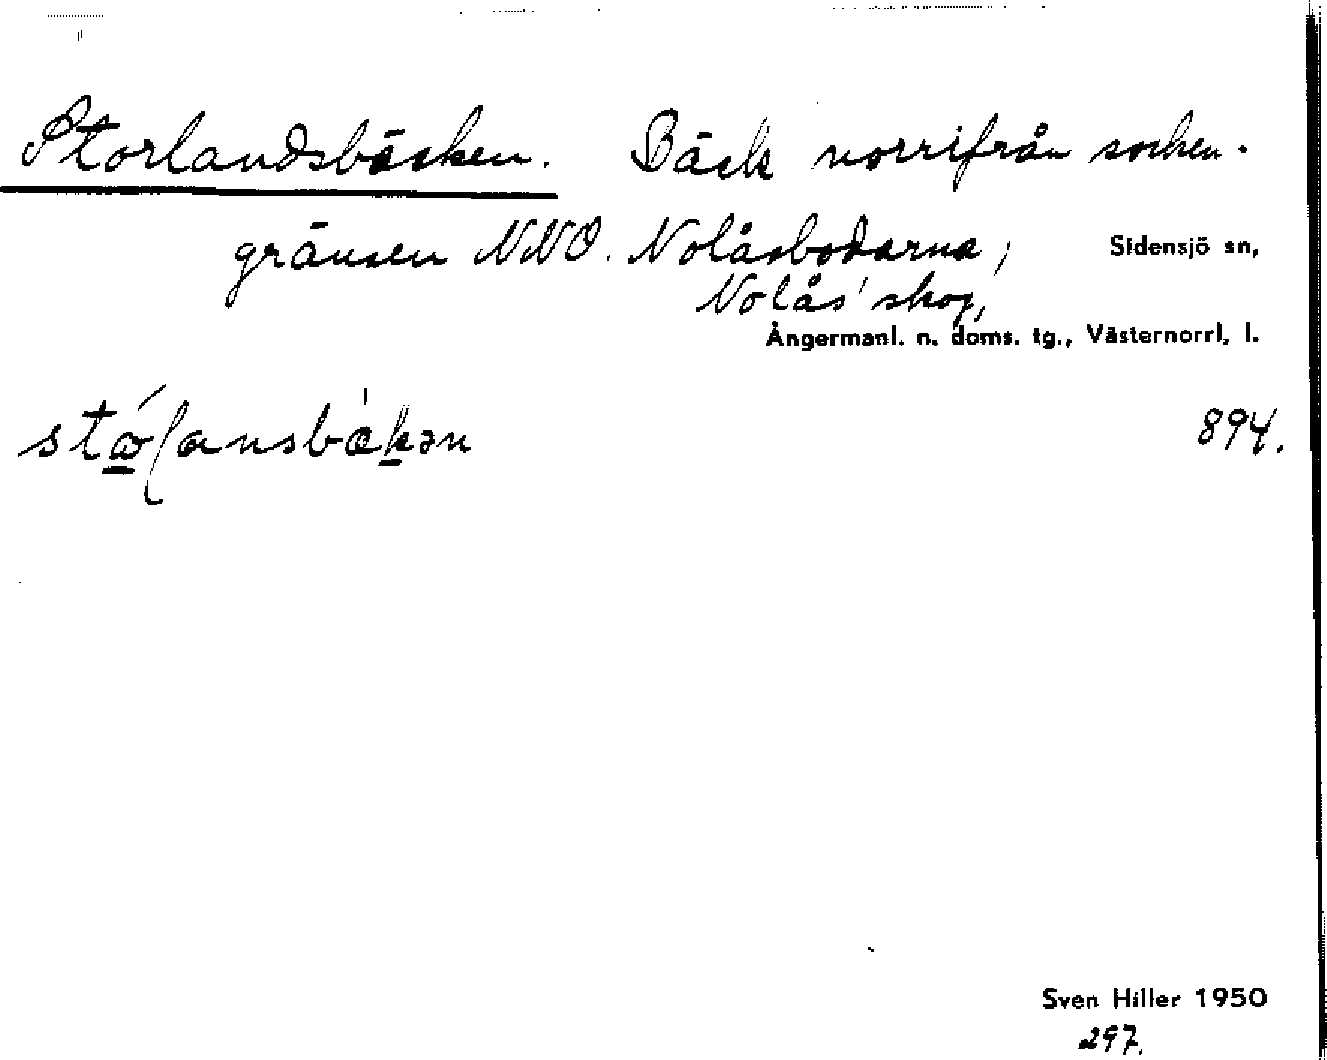 Storlandsbäcken. Bäck norrifrån socken-
gränsen NNO. Nolåsbodarna, Sidensjö sn,
Nolås' skog,
Ångermanl. n. doms. tg., Västernorrl. l.
894.
Sven Hiller 1950
297.